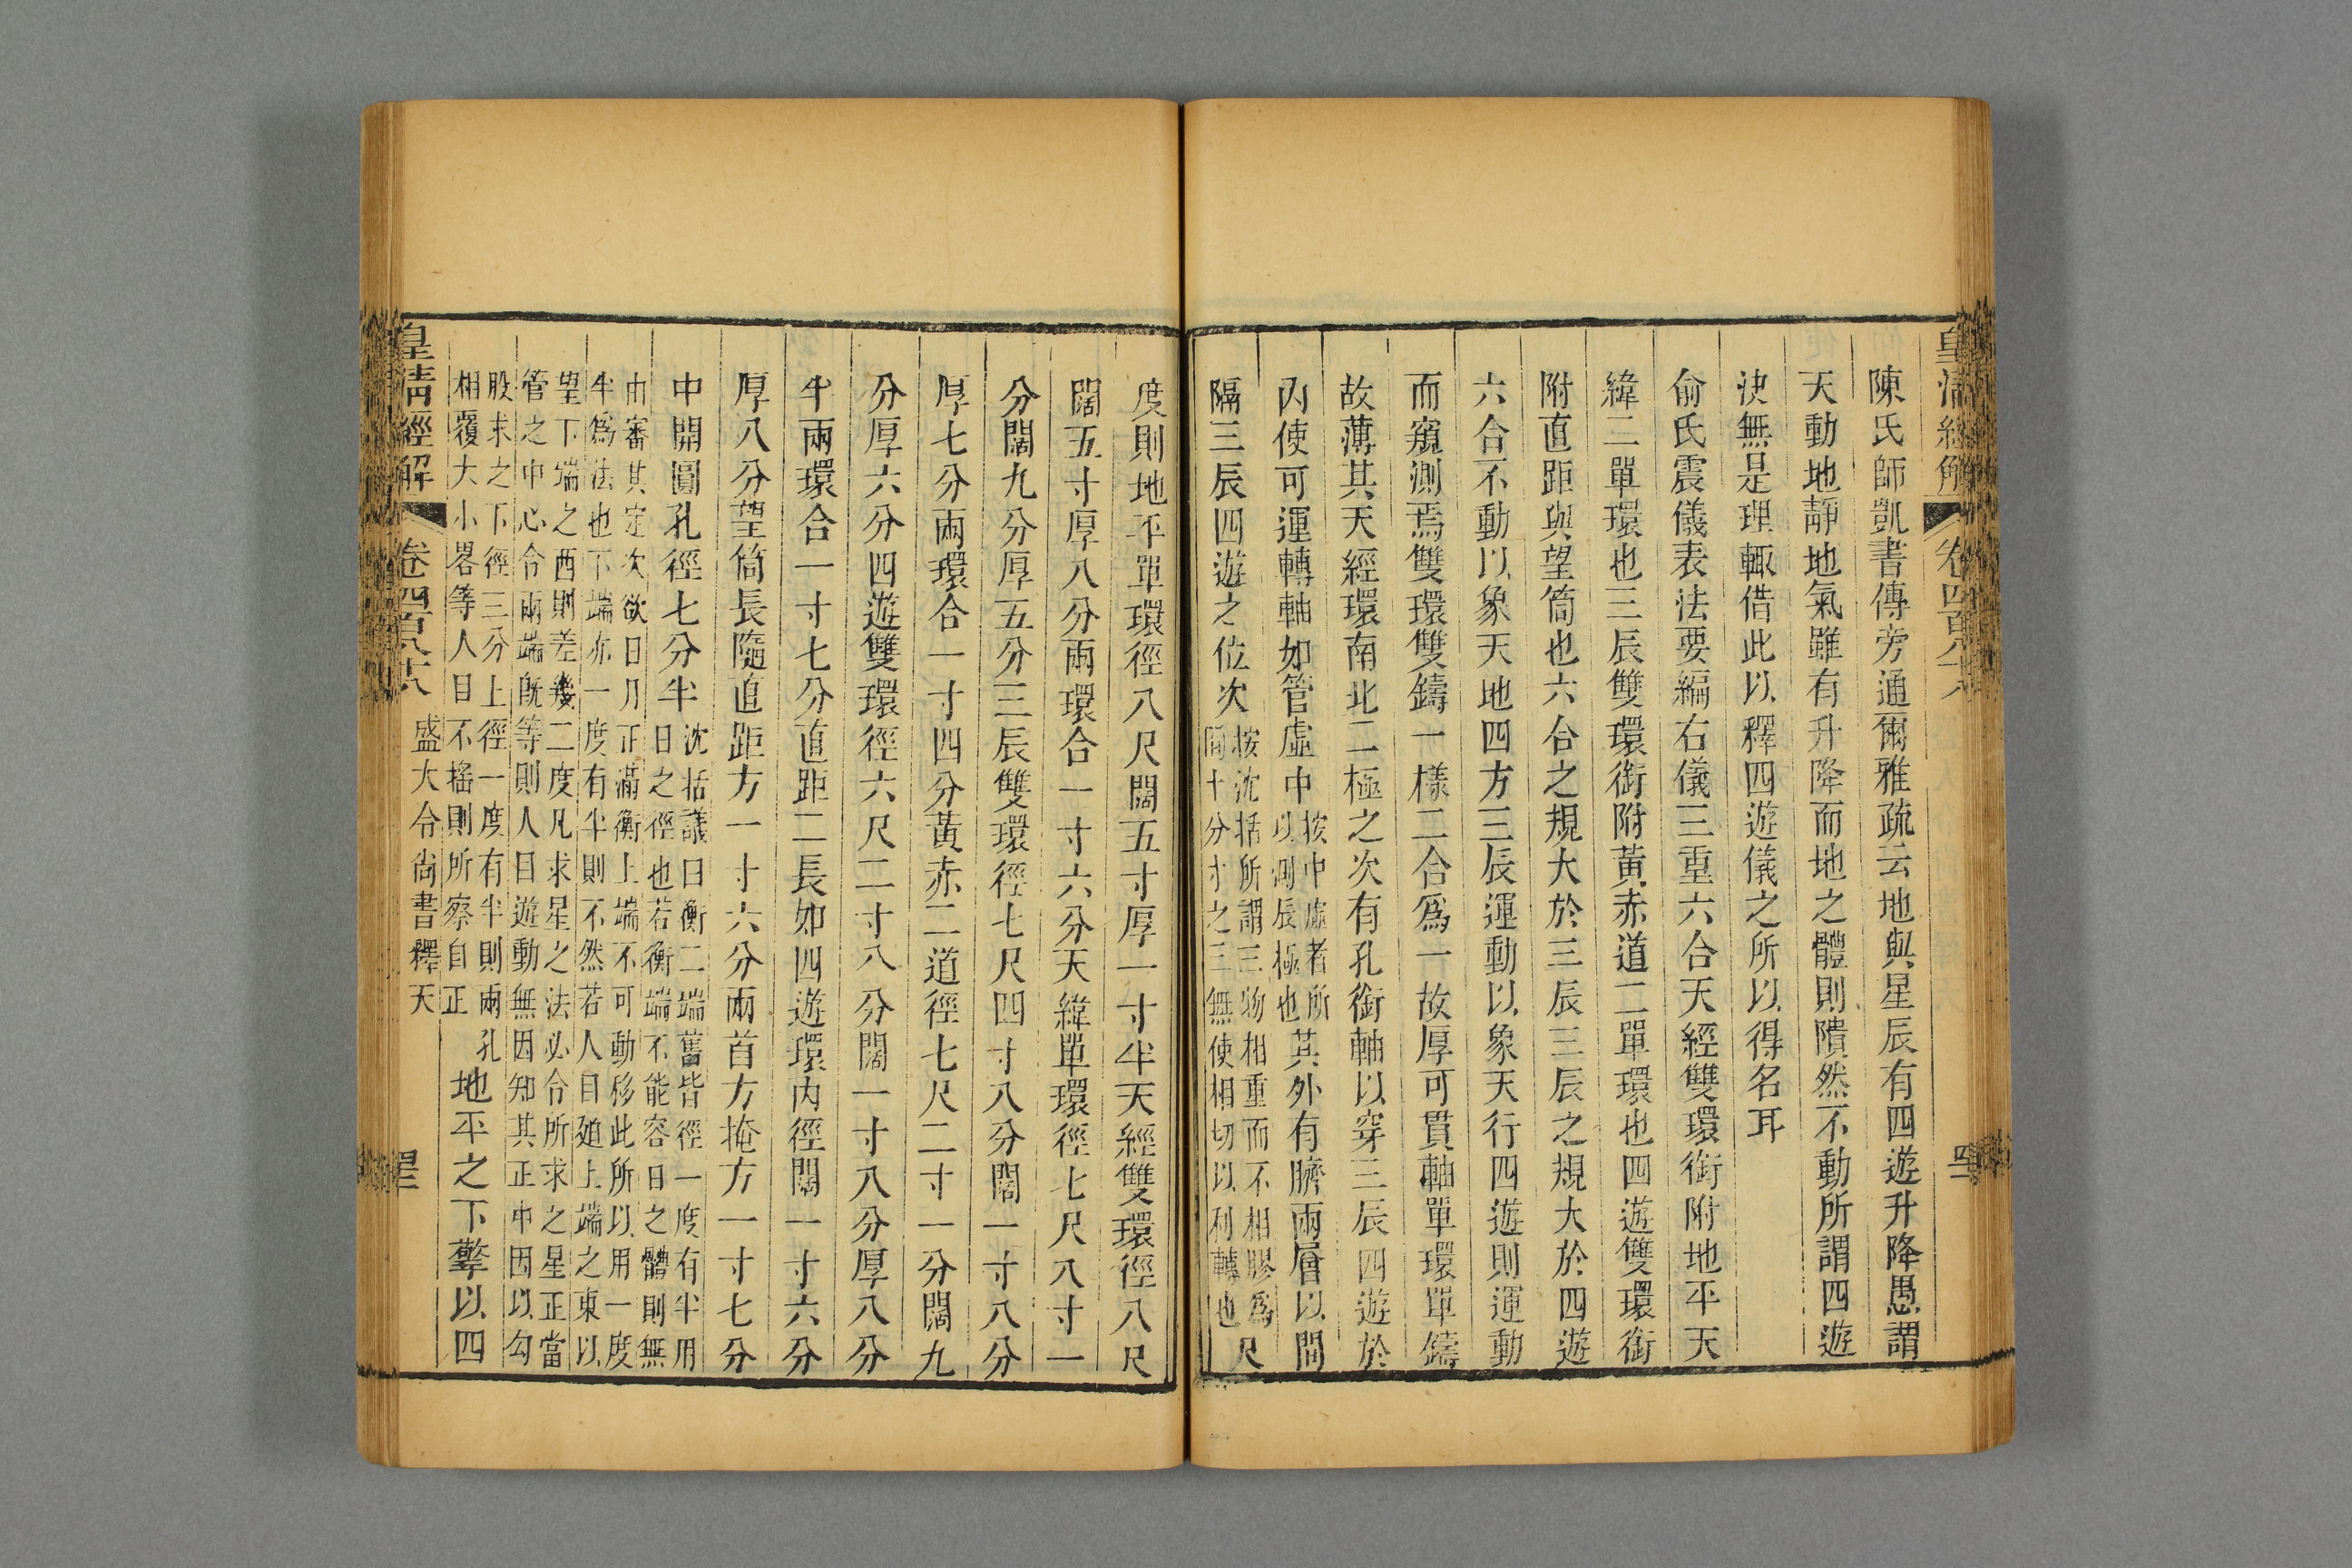 皇清經解
卷四百八十八
陳氏師凱書傳旁通爾雅疏云地與星辰有四遊升降愚謂
天動地靜地氣雖有升降而地之體則隤然不動所謂四遊
決無是理輙借此以釋四遊儀之所以得名耳
俞氏震儀表法要編右儀三重六合天經雙環銜附地平天
緯二單環也三辰雙環銜附黃赤道二單環也四遊雙環銜
附直距與望筒也六合之規大於三辰三辰之規大於四遊
六合不動以象天地四方三辰運動以象天行四遊則運動
而窺測焉雙環雙鑄一樣二合爲一故厚可貫軸單環單鑄
故薄其天經環南北二極之次有孔銜軸以穿三辰四遊於
內使可運轉軸如管虛中
按中虛者所
以測辰極也
其外有臍兩層以間
隔三辰四遊之位次
按沈括所謂三物相重而不相膠爲
間十分寸之三無使相切以利轉也
尺
度則地平單環徑八尺闊五寸厚一寸半天經雙環徑八尺
闊五寸厚八分兩環合一寸六分天緯單環徑七尺八寸一
分闊九分厚五分三辰雙環徑七尺四寸八分闊一寸八分
厚七分兩環合一寸四分黃赤二道徑七尺二寸一分闊九
分厚六分四遊雙環徑六尺二寸八分闊一寸八分厚八分
半兩環合一寸七分直距二長如四遊環內徑闊一寸六分
厚八分望筒長隨直距方一寸六分兩首方掩方一寸七分
中開圓孔徑七分半
沈括議曰衡二端舊皆徑一度有半用
日之徑也若衡端不能容日之體則無
由審其定次欲日月正滿衡上端不可動移此所以用一度
半爲法也下端亦一度有半則不然若人目廹上端之東以
望下端之西則差幾二度凡求星之法必令所求之星正當
管之中心令兩端旣等則人目遊動無因知其正中因以勾
股求之下徑三分上徑一度有半則兩孔
相覆大小畧等人目不搖則所察自正
地平之下擎以四
皇清經解
卷四百八十八
盛大令尚書釋天